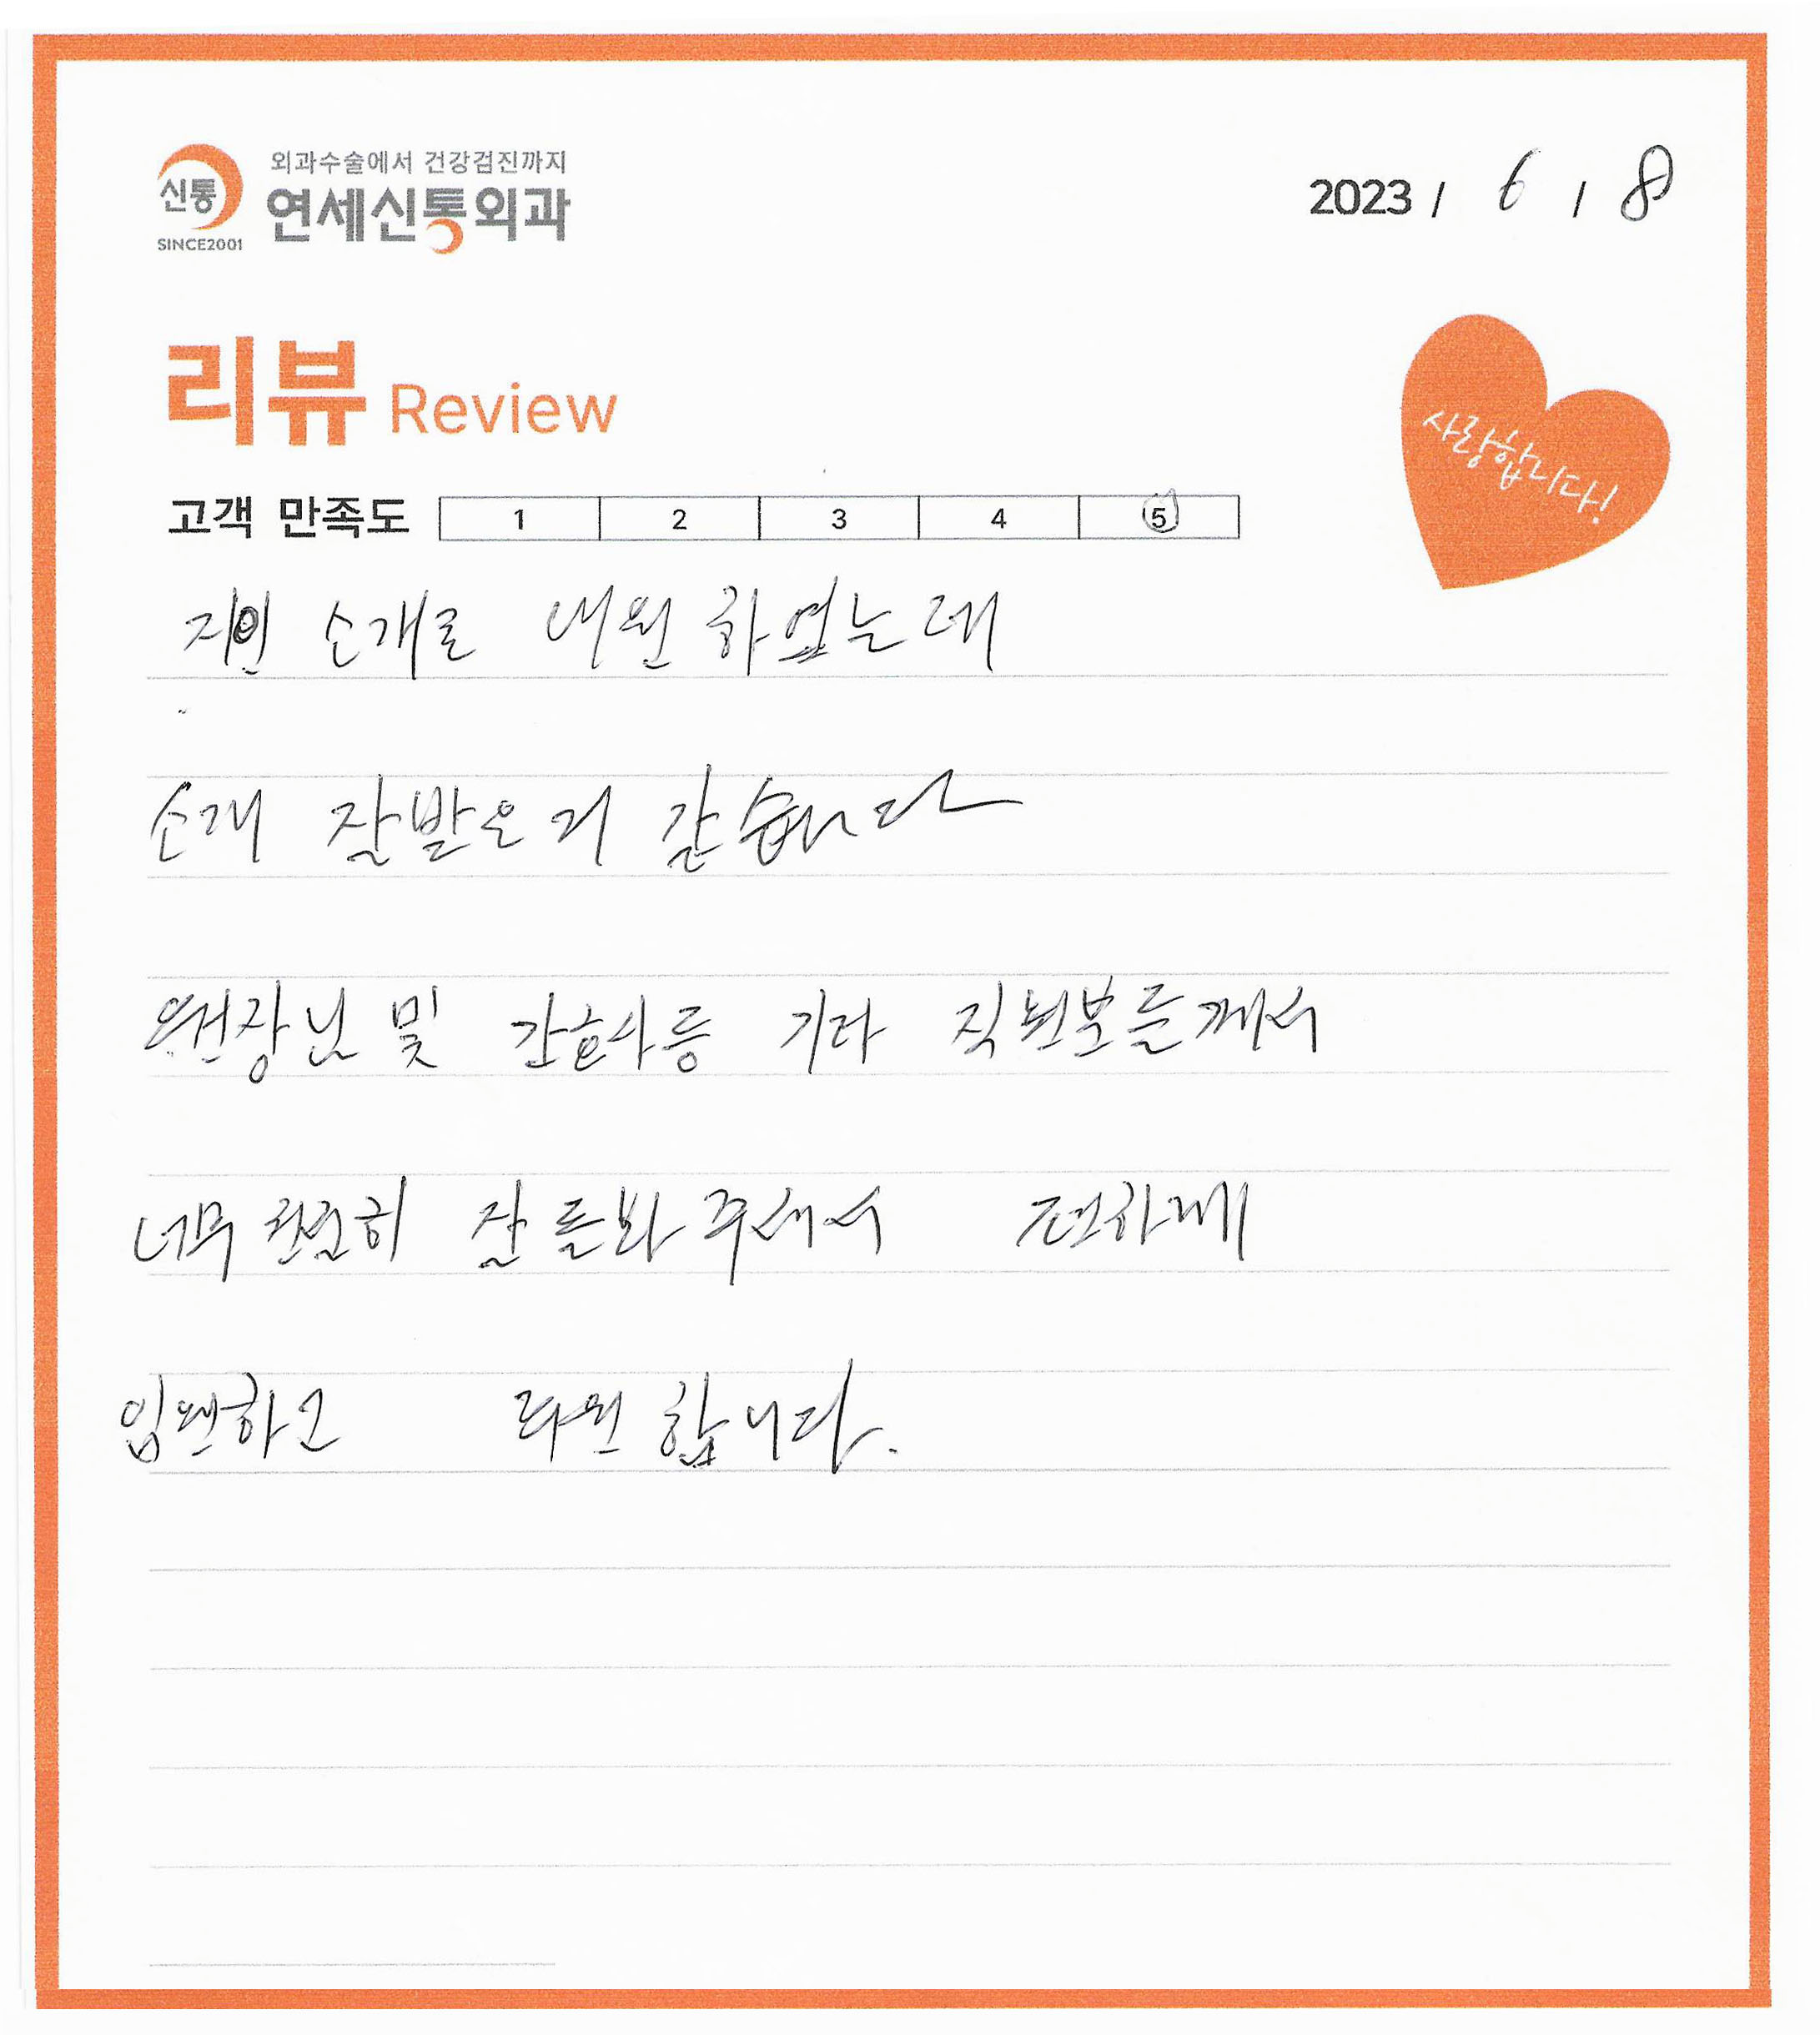 외과수술에서 건강검진까지
신통 연세신통외과
SINCE2001
2023 / 6 / 8
리뷰 Review
사랑합니다!
고객 만족도 1 2 3 4 5
지인 소개로 내원 하였는데
소개 잘받은거 같습니다
원장님 및 간호사등 기타 직원분들께서
너무 친절히 잘 돌봐 주셔서 편하게
입원하고 퇴원 합니다.